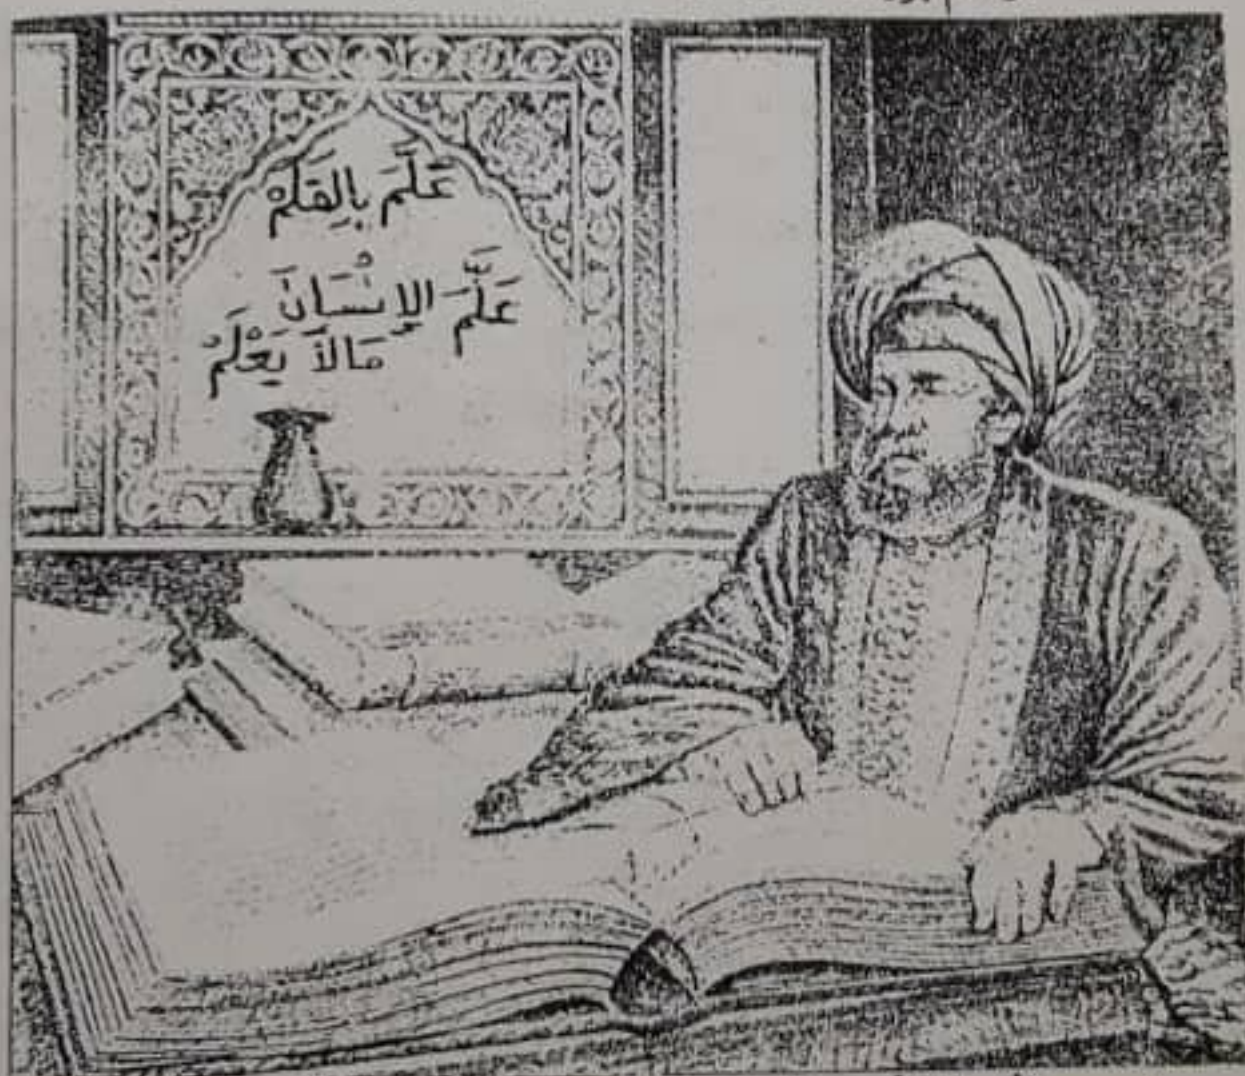 عَلَّمَ بِالقَلَمْ
عَلَّمَ الإِنْسَانَ
مَالاَ يَعْلَمْ